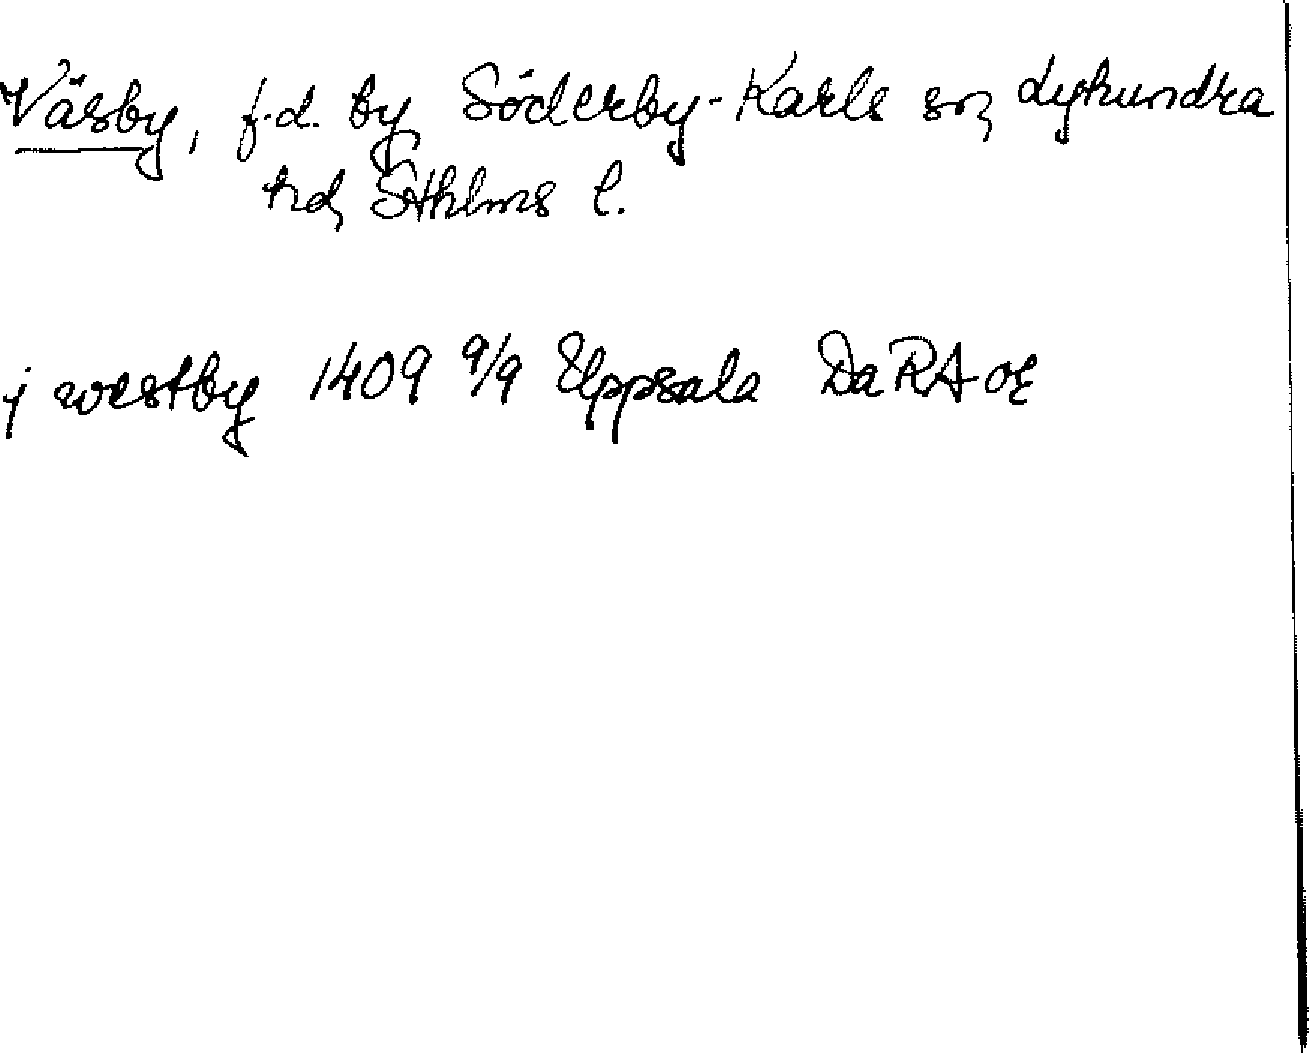 Väsby, f.d. by Söderby-Karls sn, Lyhundra
hd, Sthlms l.
j westby 1409 9/9 Uppsala Da RA or